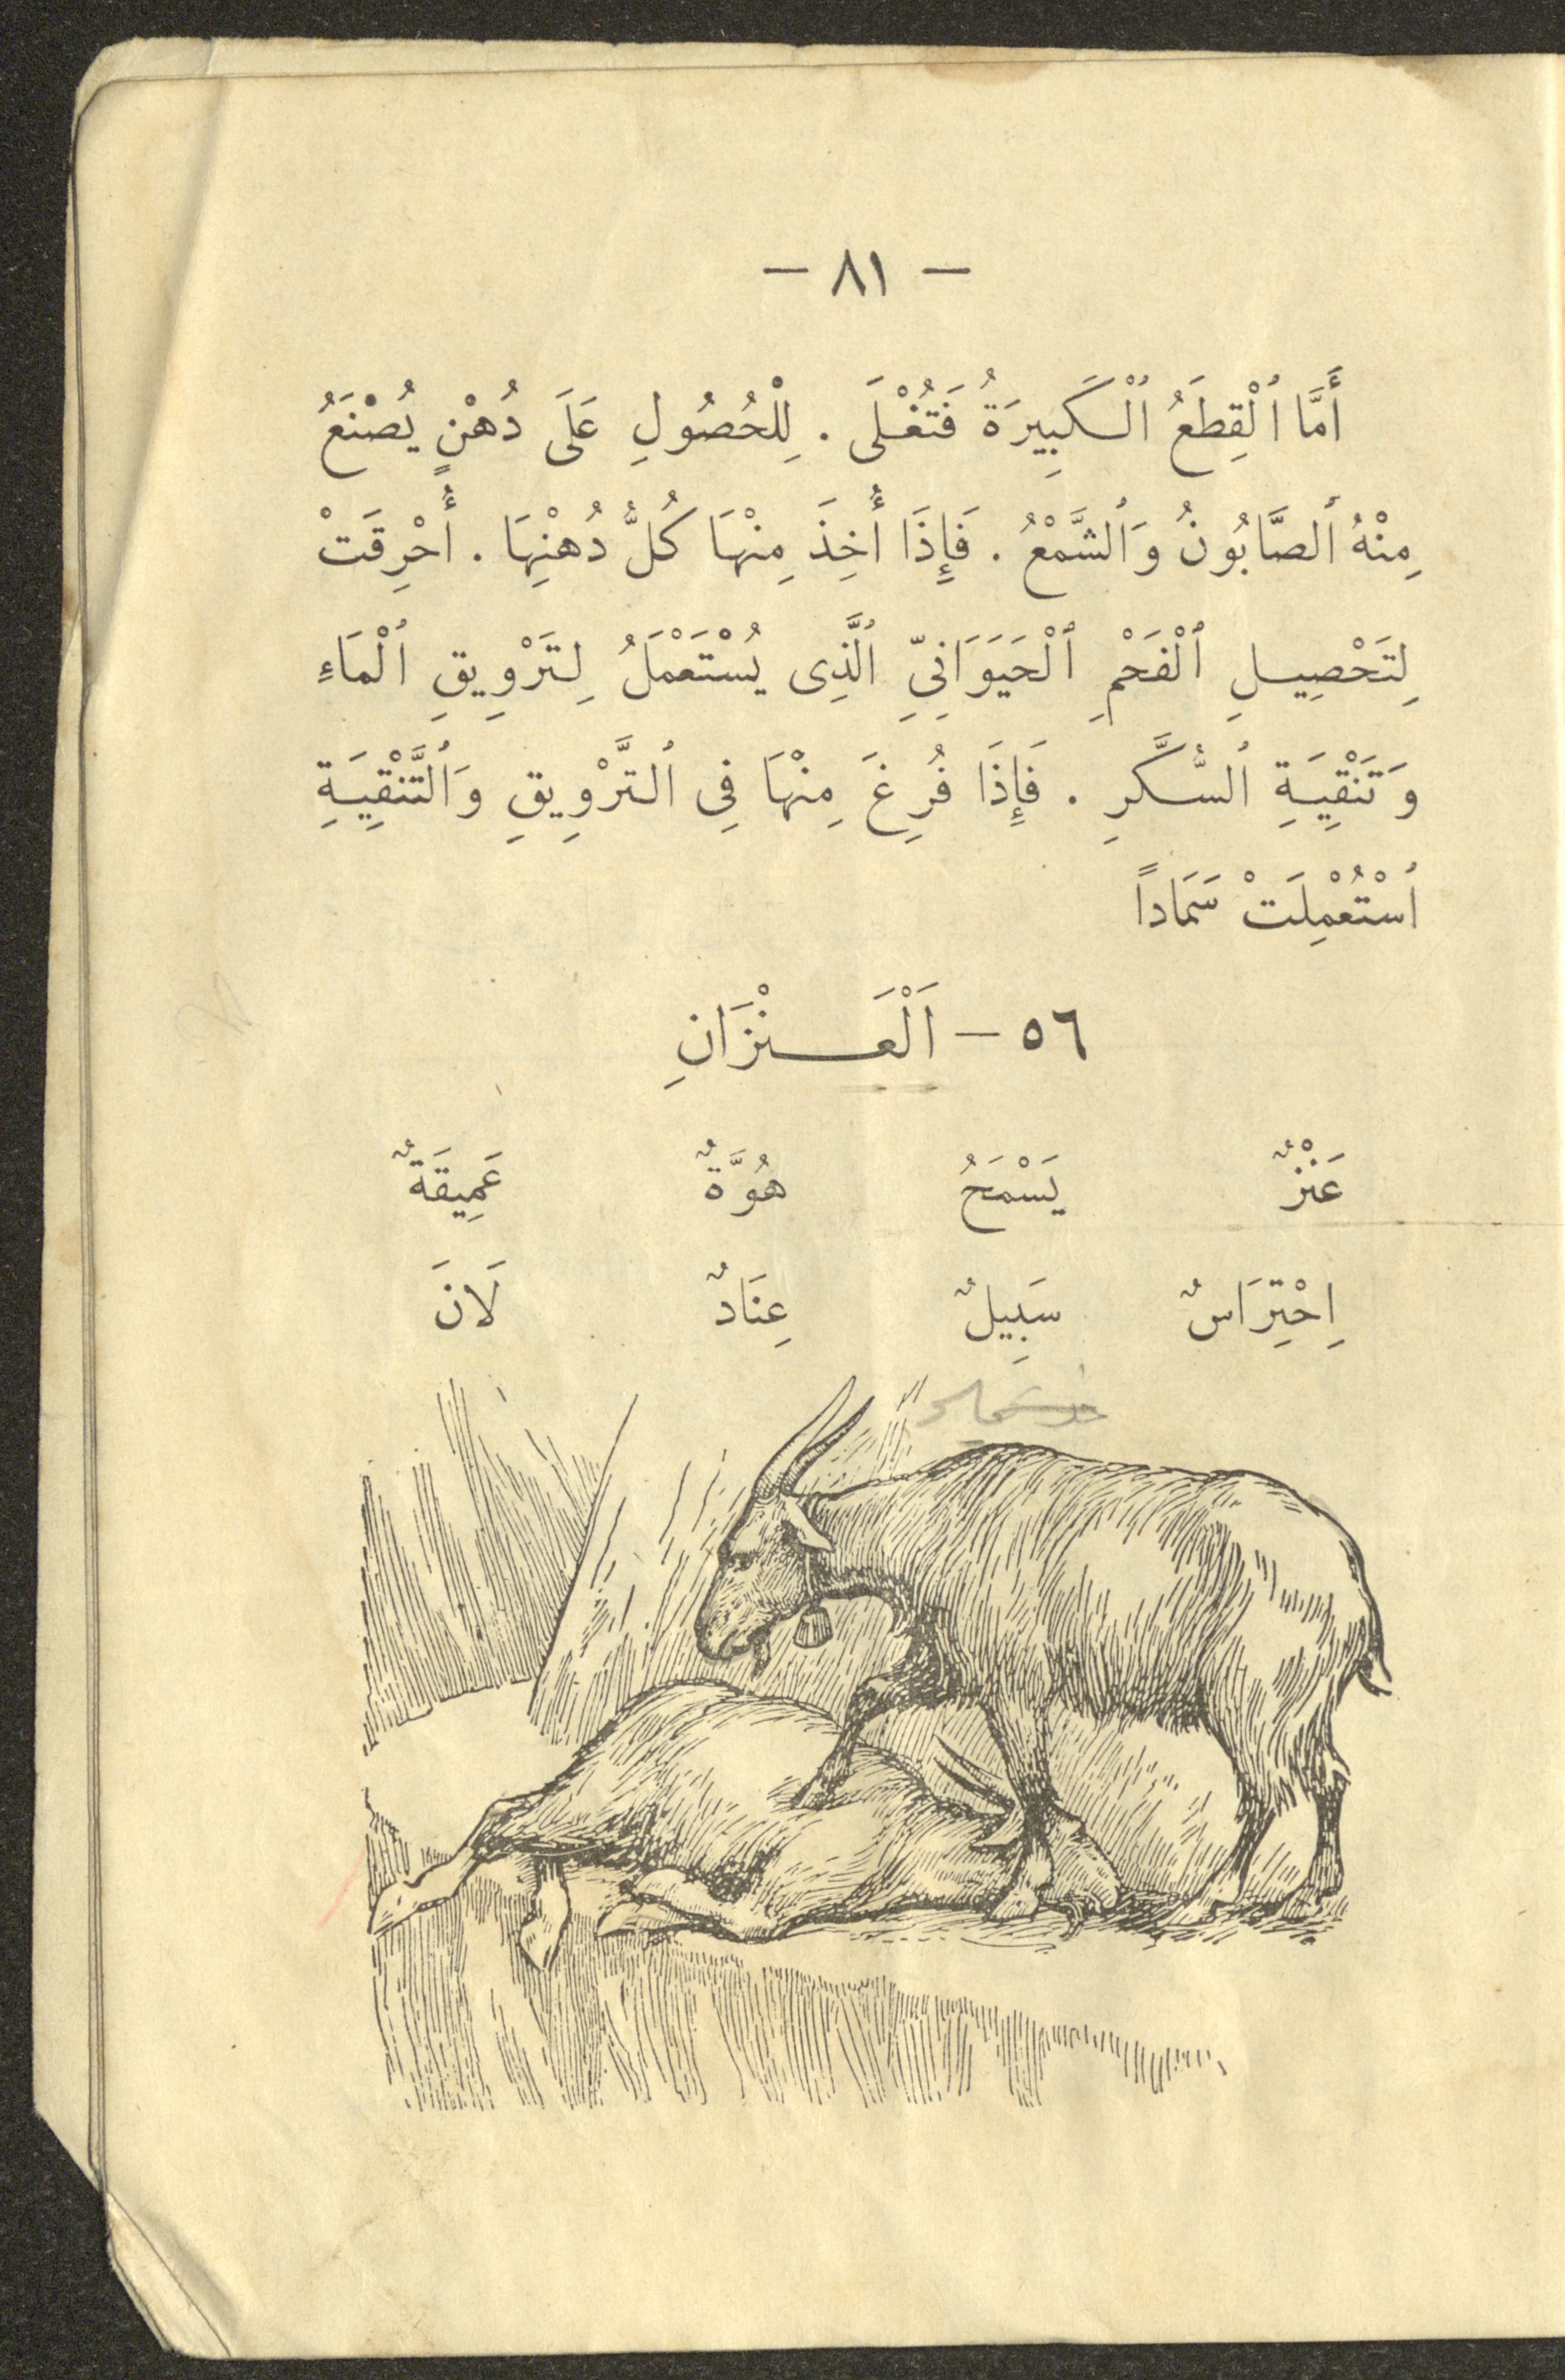 — ٨١ —
أَمَّا ٱلْقِطَعُ ٱلْكَبِيرَةُ فَتُغْلَى . لِلْحُصُولِ عَلَى دُهْنٍ يُصْنَعُ
مِنْهُ ٱلصَّابُونُ وَٱلشَّمْعُ . فَإِذَا أُخِذَ مِنْهَا كُلُّ دُهْنِهَا . أُحْرِقَتْ
لِتَحْصِيلِ ٱلْفَحْمِ ٱلْحَيَوَانِىِّ ٱلَّذِى يُسْتَعْمَلُ لِتَرْوِيقِ ٱلْمَاءِ
وَتَنْقِيَةِ ٱلسُّكَّرِ . فَإِذَا فُرِغَ مِنْهَا فِى ٱلتَّرْوِيقِ وَٱلتَّنْقِيَةِ
ٱسْتُعْمِلَتْ سَمَاداً
٥٦ – اَلْعَنْزَانِ
عَنْزٌ يَسْمَحُ هُوَّةٌ عَمِيقَةٌ
اِحْتِرَاسٌ سَبِيلٌ عِنَادٌ لَانَ